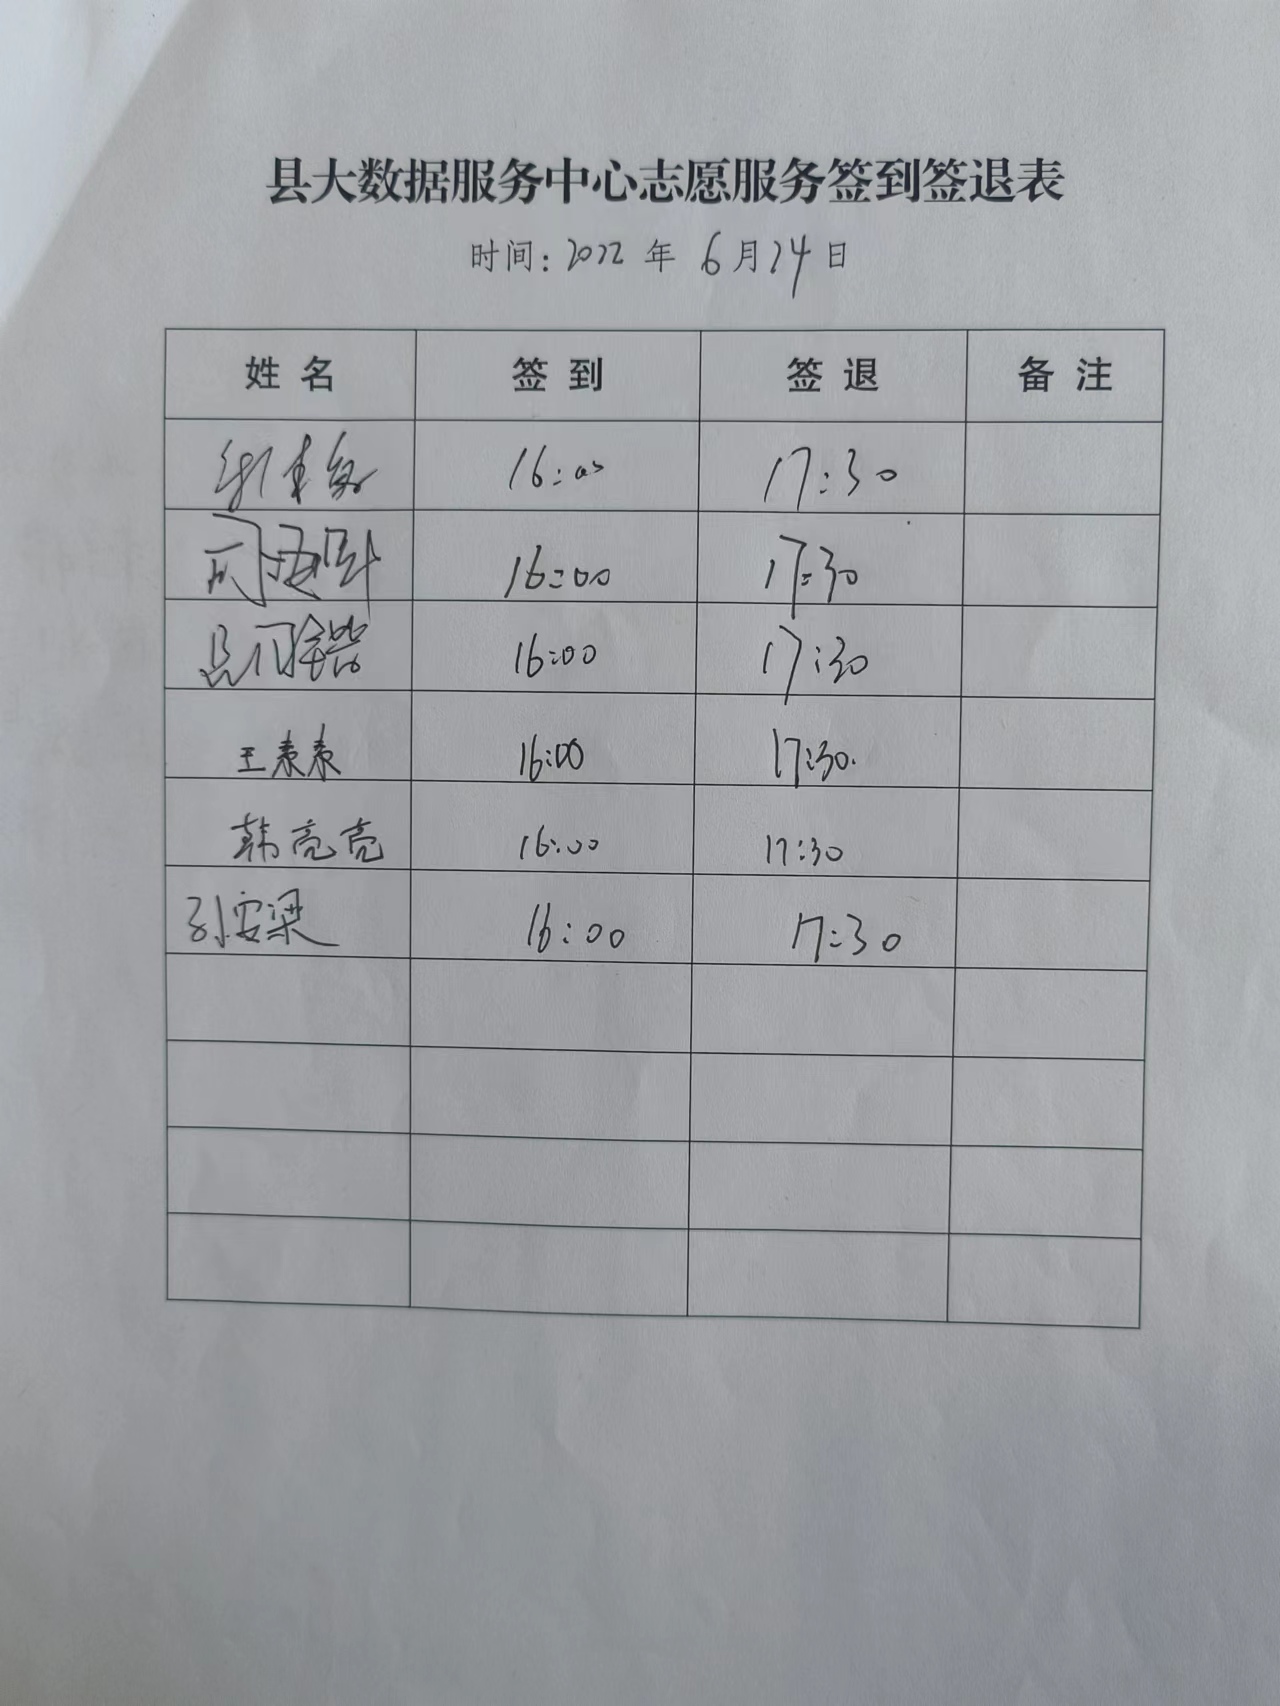 县大数据服务中心志愿服务签到签退表
时间：2022 年 6月24日
姓名 签到 签退 备注
16:00 17:30
16:00 17:30
16:00 17:30
王素素 16:00 17:30
韩亮亮 16:00 17:30
孙安梁 16:00 17:30